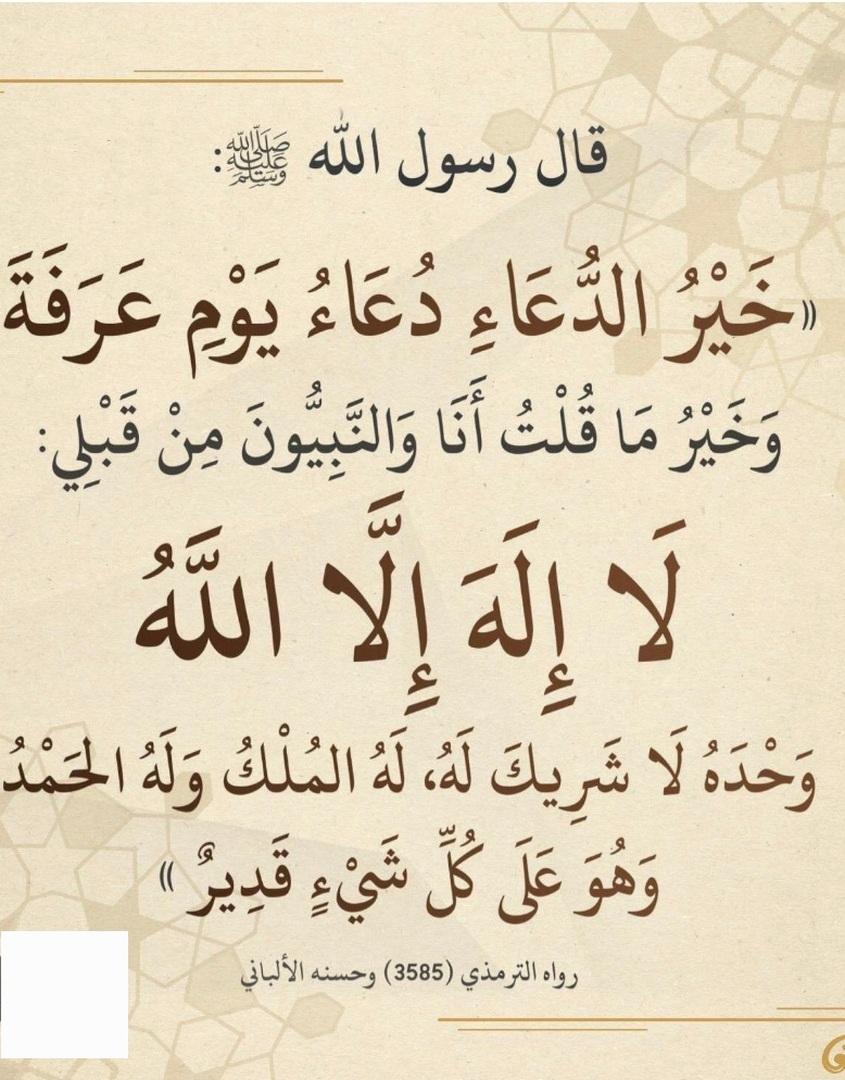 قال رسول الله ﷺ:
«خَيْرُ الدُّعَاءِ دُعَاءُ يَوْمِ عَرَفَةَ
وَخَيْرُ مَا قُلْتُ أَنَا وَالنَّبِيُّونَ مِنْ قَبْلِي:
لَا إِلَهَ إِلَّا اللَّهُ
وَحْدَهُ لَا شَرِيكَ لَهُ، لَهُ المُلْكُ وَلَهُ الحَمْدُ
وَهُوَ عَلَى كُلِّ شَيْءٍ قَدِيرٌ»
رواه الترمذي (3585) وحسنه الألباني